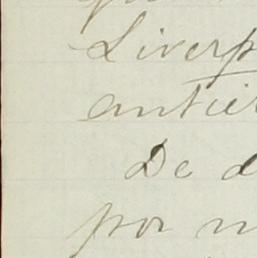 Liverp
antier
De d
por n